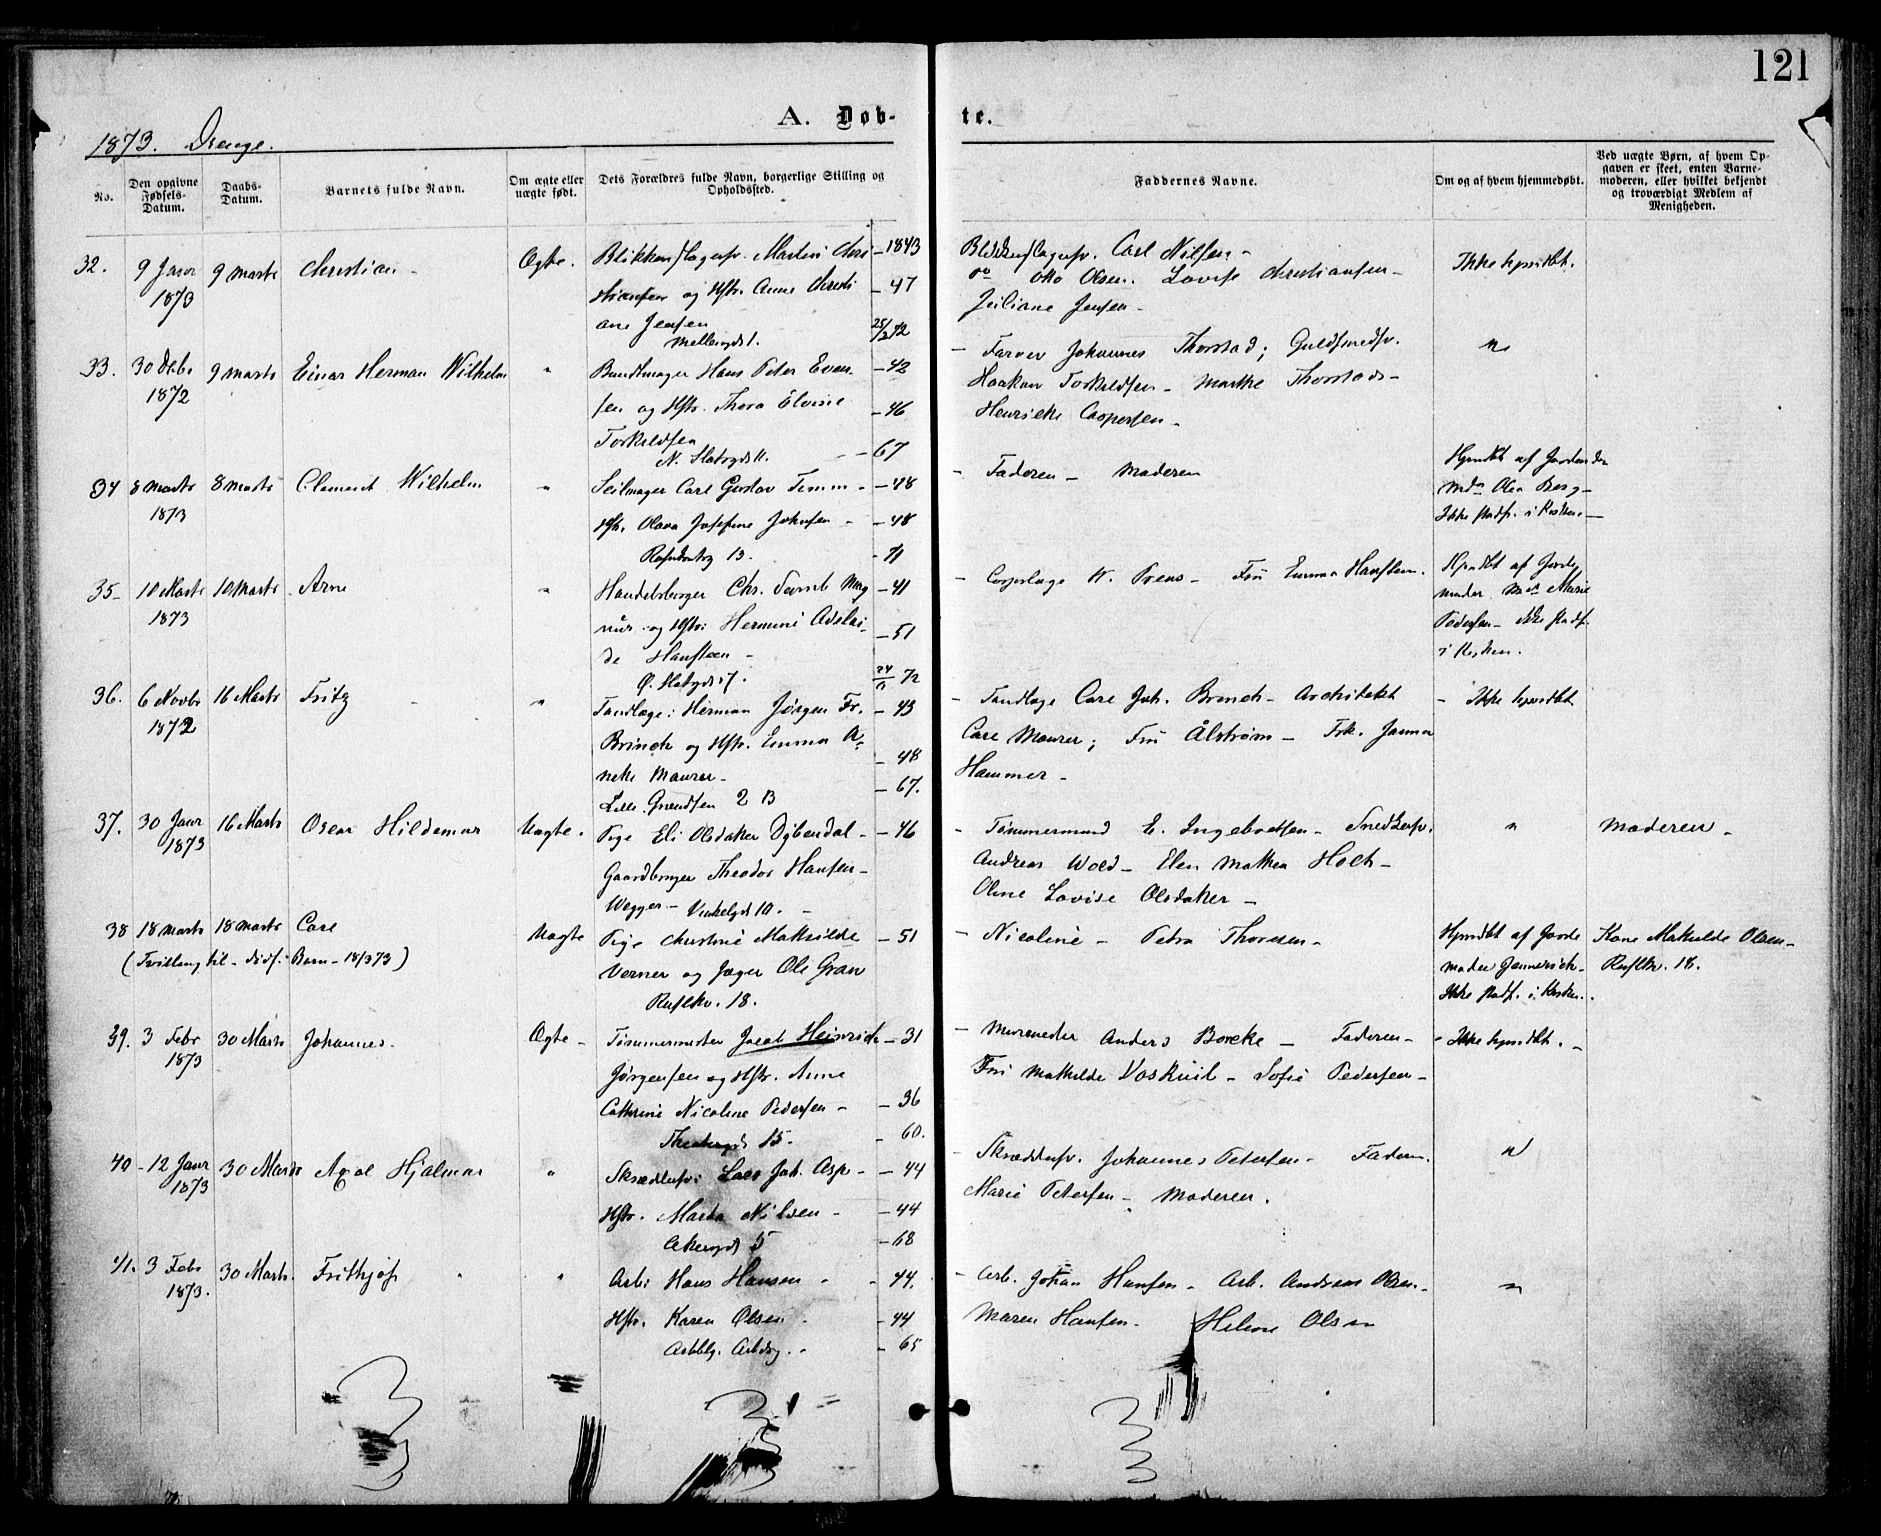 121
A. Døb-
te.
1873. Drenge.
No.
Den opgivne
Fødsels-
Datum.
Daabs-
Datum.
Barnets fulde Navn.
Om ægte eller
uægte født.
Dets Forældres fulde Navn, borgerlige Stilling og
Opholdssted.
Faddernes Navne.
Om og af hvem hjemmedøbt.
Ved uægte Børn, af hvem Op-
gaven er skeet, enten Barne-
moderen, eller hvilket bekjendt
og troværdigt Medlem af
Menigheden.
32. 9 Janr 9 Marts Christian Ægte. Blikkenslagersv. Martin Chri – 1843
1873 stiansen og Hstr. Anne Christi – 47
ane Jensen 25/2 72
Møllergd 1.
Blikkenslagersv. Carl Nilsen –
do Otto Olsen. Lovise Christiansen –
Juliane Jensen –
Ikke hjmdbt.
33. 30 Debr 9 Marts Einar Herman Wilhelm " Bundtmager Hans Peter Evan- – 42
1872 sen og Hstr. Thora Elvine – 46
Torkildsen
N. Slotsgd 11. – 67
– Farver Johannes Thorstad; Guldsmedsv. "
Haakon Torkildsen – Marthe Thorstad –
Henrikke Caspersen –
34 8 Marts 8 Marts Clement Wilhelm " Seilmager Carl Gustav Timm – – 48
1873 Hstr. Olava Josefine Johnsen – – 48
13. – 71
– Faderen – Moderen
Hjmdbt af Jordmoder
Mdm Olea Berg –
Ikke stadf. i Kirken. –
35 – 10 Marts 10 Marts Arne " Handelsborger Chr. Mag – 41
1873 nus og Hstr. Hermine Adelai- – 51
de Hansteen –
Ø. Slotsgd 17. 24/11 72
– Corpslæge W. Preus – Fru Emma Hansteen.
Hjmdbt af Jorde
moder Mdm Marie
Pedersen – ikke stadf.
i Kirken.
36. 6 Novbr 16 Marts Fritz " Tandlæge: Herman Jørgen Fr. – 43
1872 Brinch og Hstr. Emma A- – 48
neke Maurer – – 67.
Lille Grændsen 2 B
– Tandlæge Carl Joh. Brinch – Architekt – Ikke hjmdbt
Carl Maurer; Fru Ålstrøm – Frk. Janna
Hammer –
37. 30 Janr 16 Marts Oscar Hildemar Uægte. Pige Eli Olsdaker Dybendal – – 46
1873 Gaardbruger Theodor Hansen –
Wegger – Vinkelgd 10. –
– Tømmermand E. Ingebretsen – Snedkersv. " Moderen –
Andreas Wold – Elen Mathea Hoel –
Oline Lovise Olsdaker –
38 18 Marts 18 Marts Carl Uægte Pige Christine Mathilde – 51
(Tvilling til – dødf. Barn – 18/3 73) Verner og Jæger Ole Gran
Rusløkv. 18.
– Nicoline – Petra Thoresen –
Hjmdbt af Jorde
moder Jennerich –
Ikke stadf. i Kirken.
Kone Mathilde Olsen –
Rusløkv. 18.
39. 3 Febr 30 Marts Johannes. Ægte – Tømmermester Jacob Heinrich – 31
1873 Jørgensen og Hstr. Anne
Cathrine Nicoline Pedersen – – 36
Theatergd 15 – – 60.
– Murmester Anders Borcke – Faderen – – Ikke hjmdbt. –
Fru Mathilde Voskuil – Sofie Pedersen –
40 – 12 Janr 30 Marts Axel Hjalmar " Skræddersv: Lars Joh. Asp – – 44
1873 Hstr. Marta Nilsen – – 44
Akersgd 5 – 68
– Skræddersv. Johannes Petersen – Faderen. "
Marie Petersen – Moderen.
41. 3 Febr 30 Marts. Frithjof " Arb: Hans Hansen – – 44.
1873. Hstr. Karen Olsen – – 44
– 65
– Arb. Johan Hansen – Arb. Andreas Olsen – "
Maren Hansen – Helene Olsen